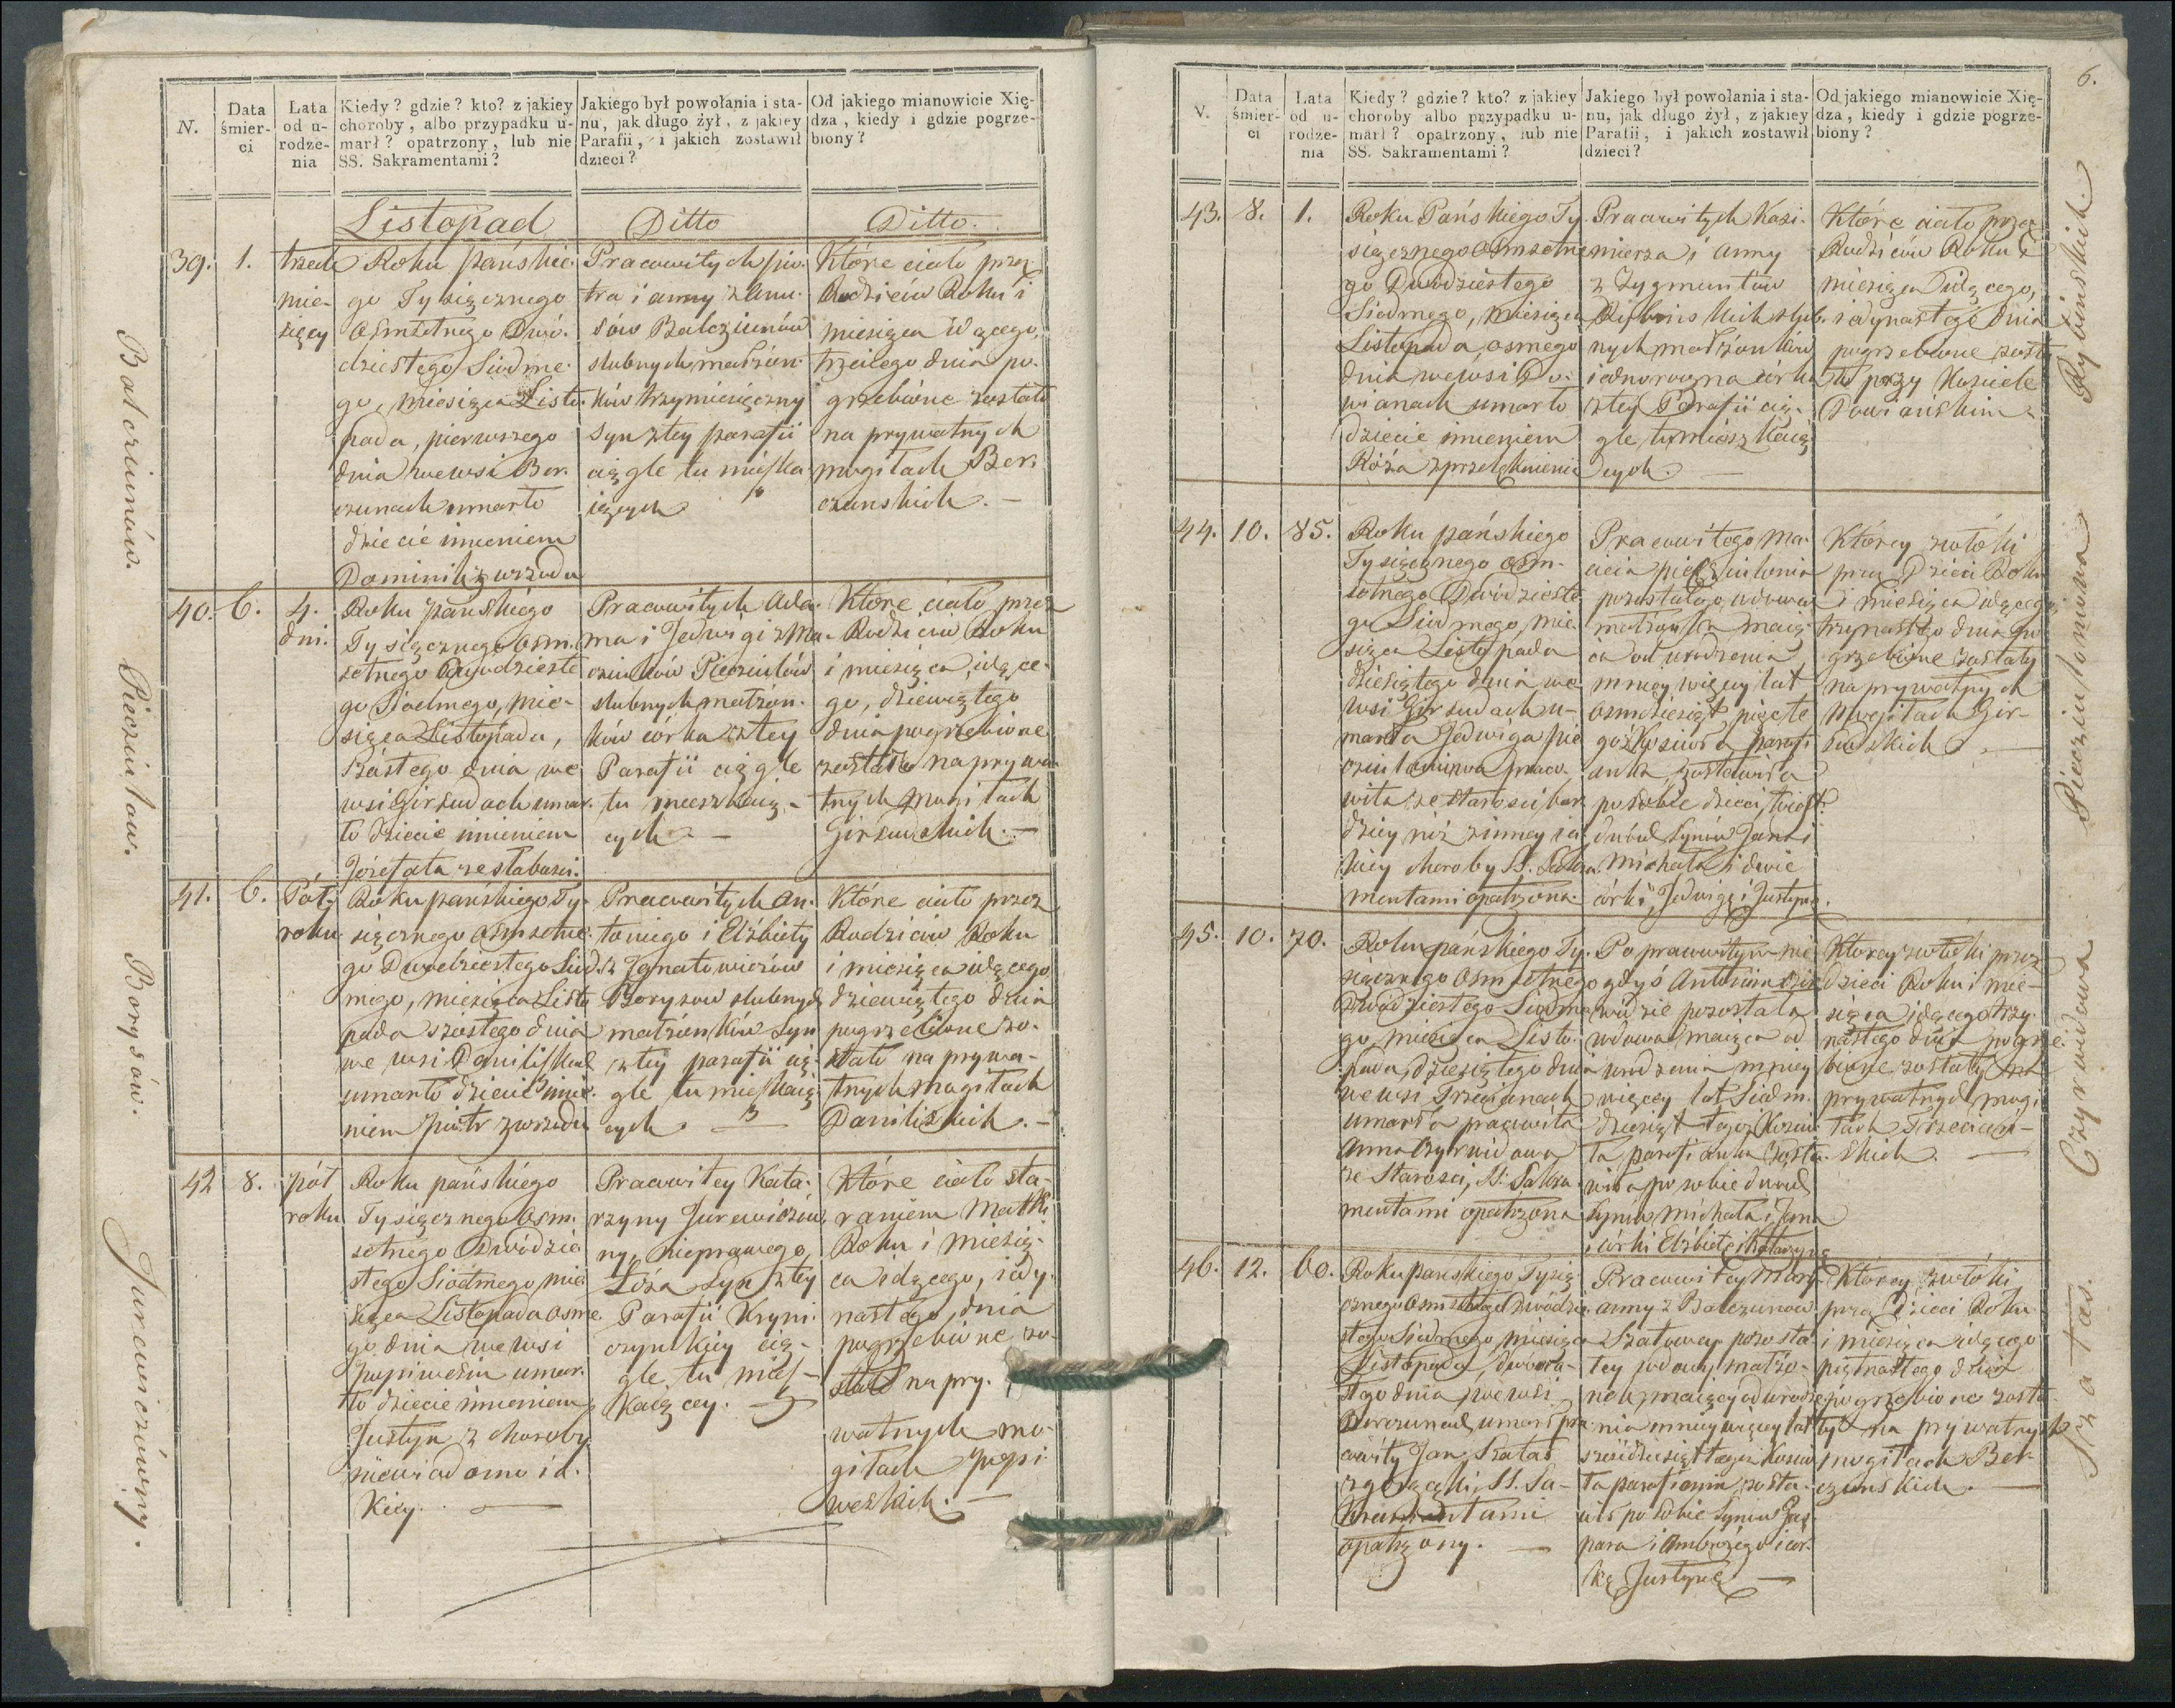 N.
Data śmierci
Lata od urodzenia
Kiedy? gdzie? kto? z jakiey choroby, albo przypadku umarł? opatrzony, lub nie SS. Sakramentami?
Jakiego był powołania i stanu, jak długo żył, z jakiey Parafii, i jakich zostawił dzieci?
Od jakiego mianowicie Xiędza, kiedy i gdzie pogrzebiony?
Listopad
Ditto
Ditto.
39.
1.
trzech
mie-
sięcy
Roku pańskie-
go Tysiącznego
Osmsetnego Dwó-
dziestego Siodme-
go, miesiąca Listo-
pada, pierwszego
dnia we wsi Ber-
czunach umarło
dziecie imieniem
Dominik z wrzodu
Pracowitych Pio-
tra i Anny z Anu-
sów Balcziunów
slubnych małżon-
ków trzymiesięczny
Syn z tey parafii
ciągle tu mieszka-
iących
Które ciało przez
Rodziców Roku i
miesiąca idącego,
trzeciego dnia po-
grzebione zostało
na prywatnych
mogiłach Ber-
czunskich. —
40.
6.
4.
dni.
Roku pańskiego
Tysiącznego Osm-
setnego Dwodzieste
go Siodmego, mie-
siąca Listopada,
Szóstego dnia we
wsi Girsudach umar-
ło dziecie imieniem
Józefata ze słabości.
Pracowitych Ada-
ma i Jedwigi z Ma-
cziulków Piecziulów
slubnych małżon-
ków córka z tey
Parafii ciągle
tu mieszkaią-
cych —
Które ciało przez
Rodziców Roku
i miesiąca, idące-
go, dziewiątego
dnia pogrzebione
zostało na prywa-
tnych mogiłach
Girsudskich. —
41.
6.
Póły
roku
Roku pańskiego Ty-
siącznego Osmsetne-
go Dwodziestego Siod-
mego, miesiąca Listo
pada szóstego dnia
we wsi Daniliszkach
umarło dziecie imie-
niem Piotr z wrzodu
Pracowitych An-
toniego i Elżbiety
z Ignatowiczów
Borysow slubnych
małżonków Syn
z tey parafii cią-
gle tu mieszkaią
cych. —
Które ciało przez
Rodziców Roku
i miesiąca idącego
dziewiątego dnia
pogrzebione zo-
stało na prywa-
tnych mogiłach
Daniliskich. —
42
8.
pół
roku
Roku pańskiego
Tysiącznego Osm-
setnego Dwódzie
stego Siodmego mie
siąca Listopada Osme
go dnia we wsi
umar-
ło dziecie imieniem
Justyn z choroby
niewiadomo ia-
kiey. —
Pracowitey Kata-
rzyny Jurewiczów
ny, nieprawego
Łoża Syn z tey
Parafii Kryni-
czynskiey cią-
gle tu miesz-
kaiącey. —
Które ciało sta-
raniem Matki
Roku i miesią-
ca idącego, iedy-
nastego, dnia
pogrzebione zo-
stało na pry-
watnych mo-
giłach
Balcziunów.
Piecziulów.
Borysów.
Jurewiczówny.
V.
Data śmierci
Lata od urodzenia
Kiedy? gdzie? kto? z jakiey choroby albo przypadku umarł? opatrzony, lub nie SS. Sakramentami?
Jakiego był powołania i stanu, jak długo żył, z jakiey Parafii, i jakich zostawił dzieci?
Od jakiego mianowicie Xiędza, kiedy i gdzie pogrzebiony?
6.
43.
8.
1.
Roku Pańskiego Ty-
siącznego Osmsetne
go Dwodziestego
Siodmego, miesiąca
Listopada, osmego
dnia we wsi Po-
wianach umarło
dziecie imieniem
Róża z przelęknienia
Pracowitych Kazi-
mierza i Anny
z Zygmuntów
Rybinskich slub-
nych małżonków
iednoroczna córka
z tey Parafii cią-
gle tu mieszkaią
cych. —
Które ciało przez
Rodziców Roku i
miesiąca idącego,
iedynastego dnia
pogrzebione zosta
ło przy Kosciele
Powianskim.
44.
10.
85.
Roku pańskiego
Tysiącznego Osm-
setnego Dwódzieste
go Siodmego, mie
siąca Listopada
dziesiątego dnia we
wsi Girsudach u-
marła Jedwiga Pie
cziulaniowa praco-
wita, ze starosci bar
dziey niż z inney ia
kiey choroby SS. Sakra-
mentami opatrzona.
Pracowitego Ma-
cieia
pozostałego wdowa
małżonka maią-
ca od urodzenia
mniey więcey lat
osmdziesiąt pięć te
goż Koscioła parafi
anka, zostawiła
po sobie dzieci
dwóch Synów Jana i
Michała i dwie
córki, Jedwigę i Justynę.
Którey zwłoki
przez Dzieci Roku
i miesiąca idącego
trzynastego dnia po
grzebione zostały
na prywatnych
Mogiłach Gir-
sudskich. —
45.
10.
70.
Roku pańskiego Ty-
siącznego Osmsetnego
Dwódziestego Siodme
go, miesiąca Listo-
pada, dziesiątego dnia
we wsi Trzecianach
umarła pracowita
Anna Czyrwidowa
ze Starosci, SS: Sakra-
mentami opatrzona
Po pracowitym nie
gdyś Antonim
pozostała
wdowa maiąca od
urodzenia mniey
więcey lat Siedm-
dziesiąt tegoż Koscio
ła parafianka zosta-
wiła po sobie dwuch
Synów Michała i Jana
i córki Elżbietę i Katarzynę
Którey zwłoki przez
Dzieci Roku i mie-
siąca idącego trzy-
nastego dnia pogrze-
bione zostały na
prywatnych mogi-
łach Trzeciań-
skich. —
46.
12.
60.
Roku pańskiego Tysią
cznego Osmsetnego Dwódzie-
stego Siodmego, miesiąca
Listopada, dwóna-
stego dnia we wsi
Berczunach umarł pra
cowity Jan Szatas
z gorączki, SS. Sa-
kramentami
opatrzony. —
Pracowitey Mary-
anny z Balczunow
Szatowey pozosta-
łey wdowy małżo-
nek, maiący od urodze
nia mniey więcey lat
szeidziesiąt tegoż Koscio
ła parafianin, zosta-
wił po sobie Synów
i Ambrożego i cór-
kę Justynę —
Którey zwłoki
przez Dzieci Roku
i miesiąca idącego
piętnastego dnia
pogrzebione zosta-
ły na prywatnych
mogiłach Ber-
czunskich. —
Rybińskich.
Piecziulaniowa
Czyrwidowa
Szatas.